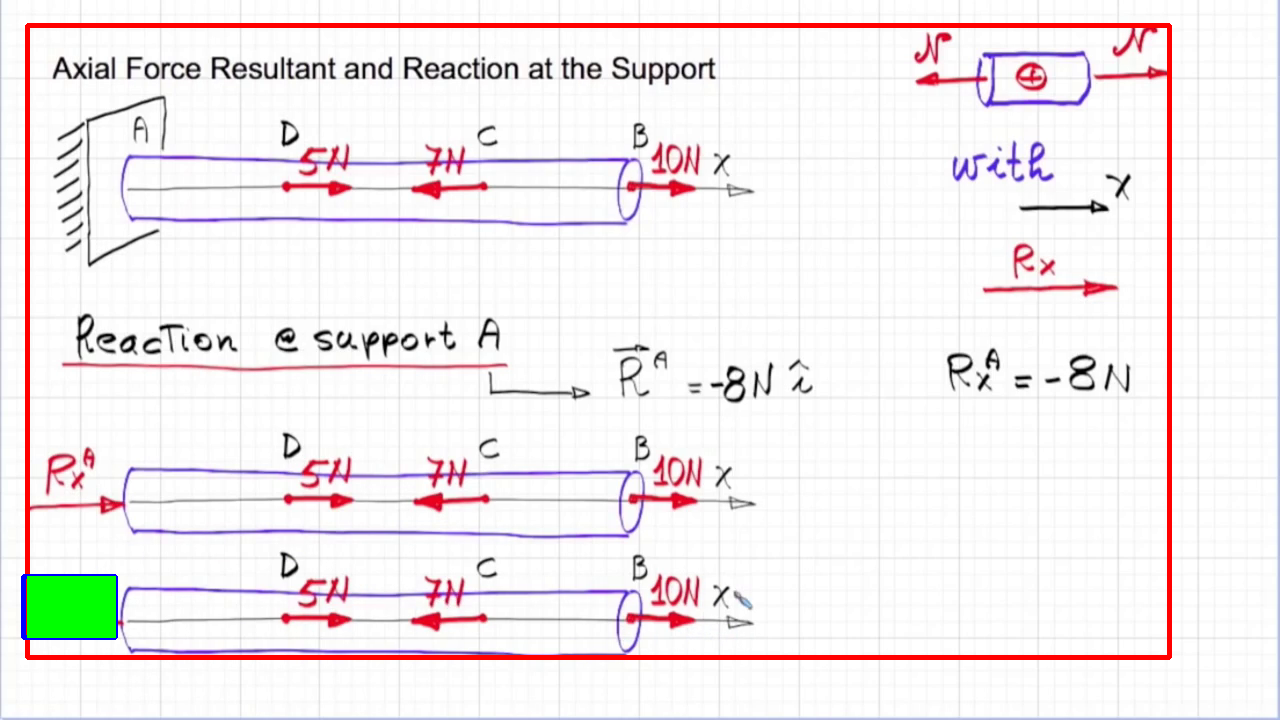 Axial Force Resultant and Reaction at the Support
N + N
A D 5N 7N C B 10N x
with
x
Rx
Reaction @ support A
R^A = -8N î
Rx^A = -8N
Rx^A D 5N 7N C B 10N x
D 5N 7N C B 10N x